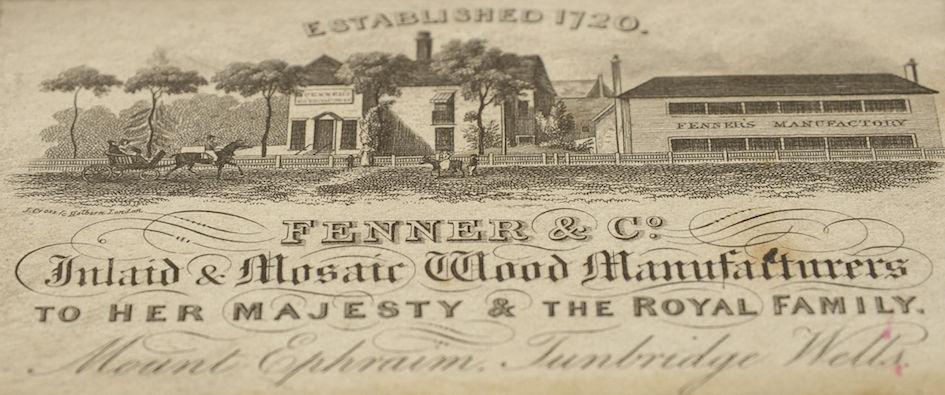 ESTABLISHED 1720.
FENNER'S MANUFACTORY
FENNER & Co.
Inlaid & Mosaic Wood Manufacturers
TO HER MAJESTY & THE ROYAL FAMILY.
Mount Ephraim, Tunbridge Wells.